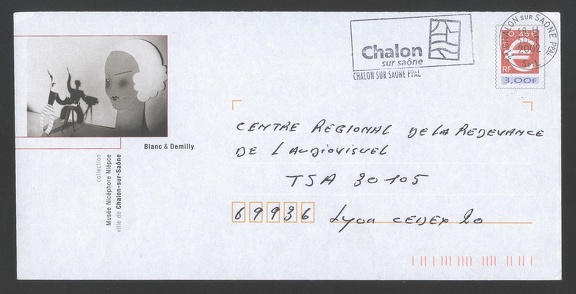 Chalon
sur saône
CHALON SUR SAONE PPAL
CHALON SUR SAONE PPAL
2002
0,46€
RF
3,00F
Blanc & Demilly
collection
Musée Nicéphore Niépce
ville de Chalon-sur-Saône
CENTRE RÉGIONAL DE LA REDEVANCE
DE L'AUDIOVISUEL
TSA 30105
69936 Lyon CEDEX 20